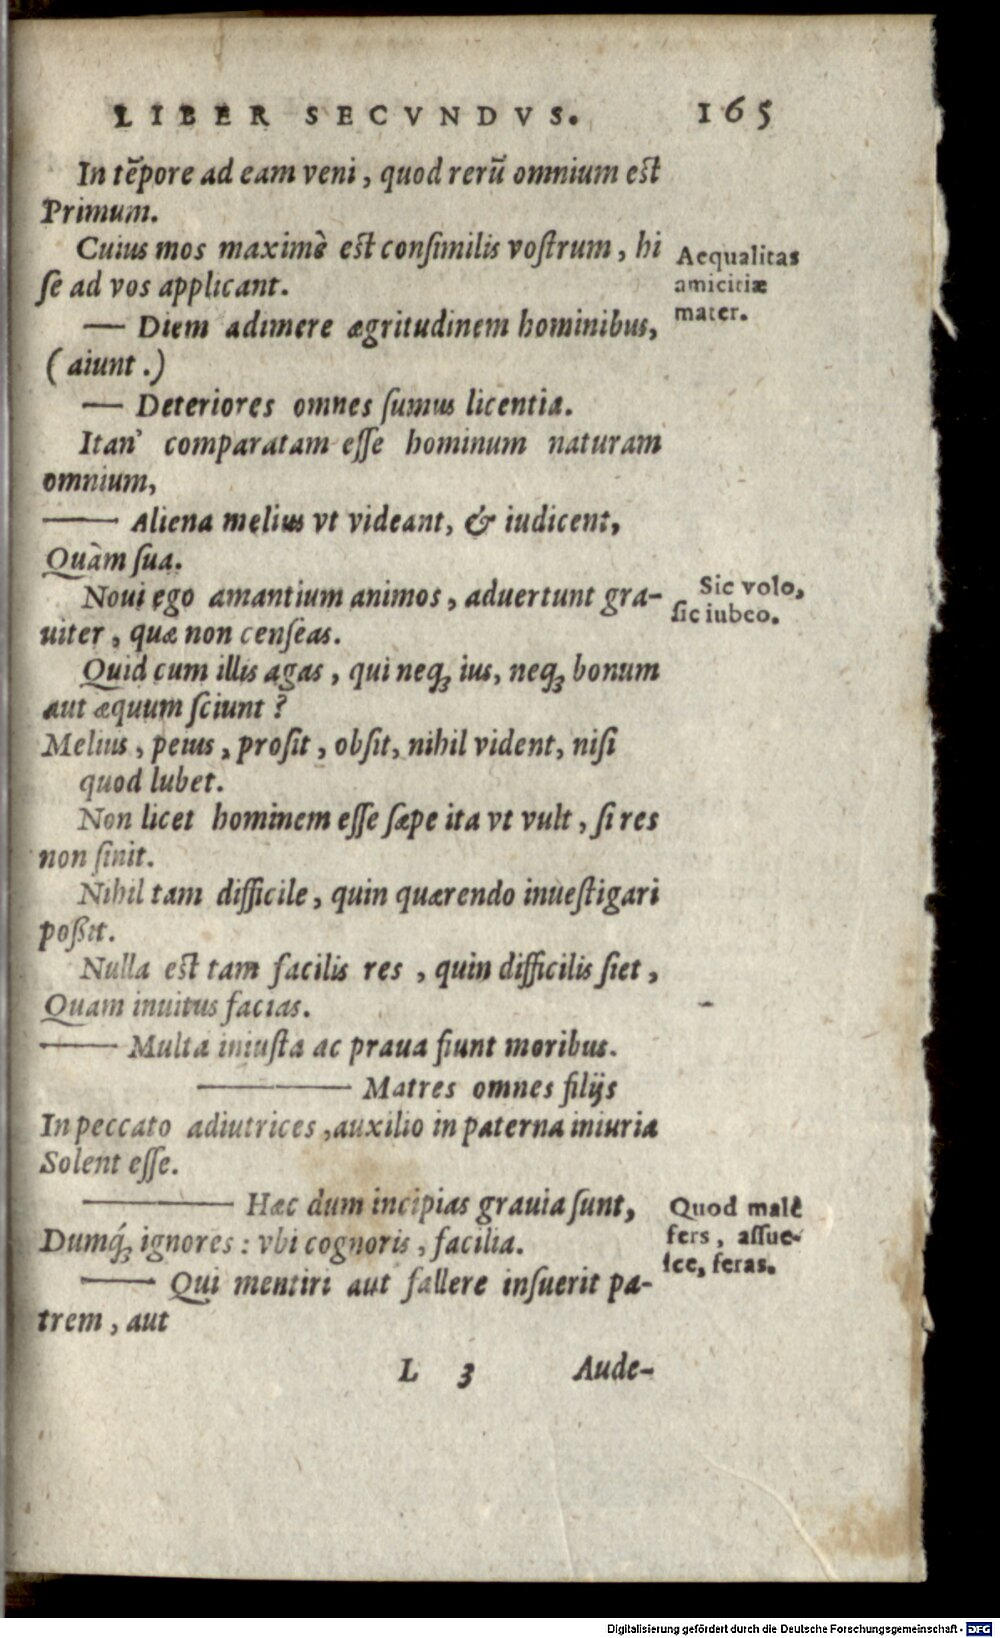 LIBER SECVNDVS. 165
In tẽpore ad eam veni, quod rerũ omnium est
Primum.
Cuius mos maximè est consimilis vostrum, hi
se ad vos applicant.
Aequalitas
amicitiæ
mater.
— Diem adimere ægritudinem hominibus,
(aiunt.)
— Deteriores omnes sumus licentia.
Itan' comparatam esse hominum naturam
omnium,
— Aliena melius vt videant, & iudicent,
Quàm sua.
Noui ego amantium animos, aduertunt gra-
uiter, quæ non censeas.
Sic volo,
sic iubeo.
Quid cum illis agas, qui neq; ius, neq; bonum
aut æquum sciunt?
Melius, peius, prosit, obsit, nihil vident, nisi
quod lubet.
Non licet hominem esse sæpe ita vt vult, si res
non sinit.
Nihil tam difficile, quin quærendo inuestigari
poßit.
Nulla est tam facilis res, quin difficilis siet,
Quam inuitus facias.
— Multa iniusta ac praua fiunt moribus.
— Matres omnes filijs
In peccato adiutrices, auxilio in paterna iniuria
Solent esse.
— Hæc dum incipias grauia sunt,
Dumq́; ignores: vbi cognoris, facilia.
Quod malè
fers, assue-
sce, feras.
— Qui mentiri aut fallere insuerit pa-
trem, aut
L 3 Aude-
Digitalisierung gefördert durch die Deutsche Forschungsgemeinschaft - DFG